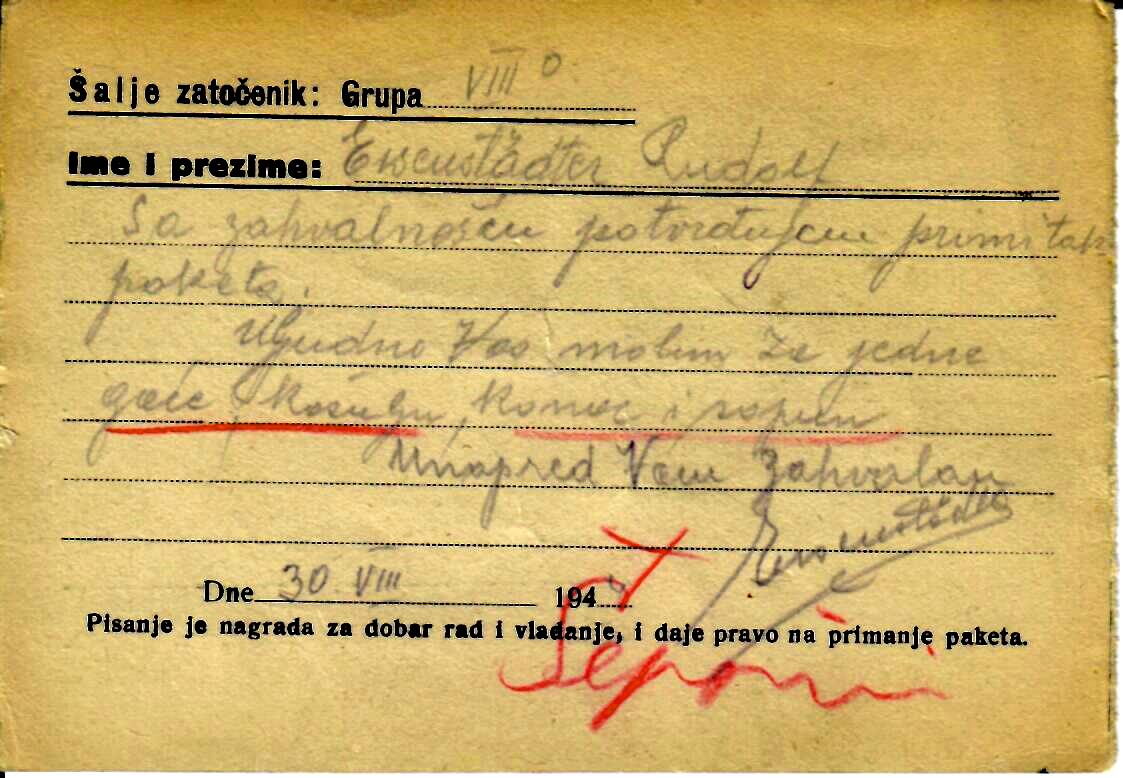 Šalje zatočenik: Grupa VIII 0
Ime i prezime: Eisenstädter Rudolf
Sa zahvalnošću potvrđujem primitak
paketa.
Uljudno Vas molim za jedne
gaće, košulju, konac i sapun
Unapred Vam zahvalan
Eisenstädter
Dne 30 VIII 194
Pisanje je nagrada za dobar rad i vladanje, i daje pravo na primanje paketa.